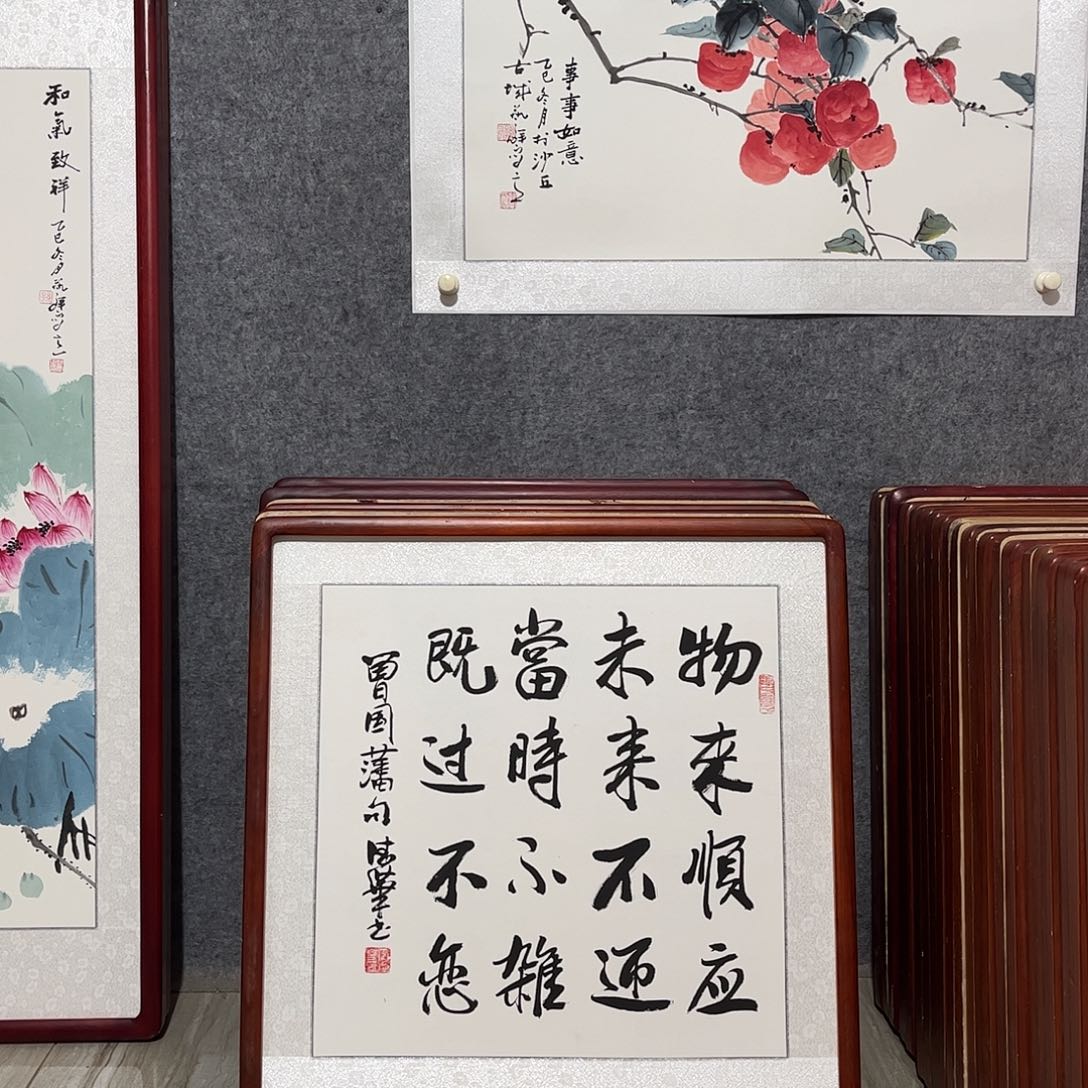 和氣致祥
乙巳冬月
事事如意
乙巳冬月於沙丘
古城
物來順应
未来不迎
當時不雜
既过不恋
曾国藩句